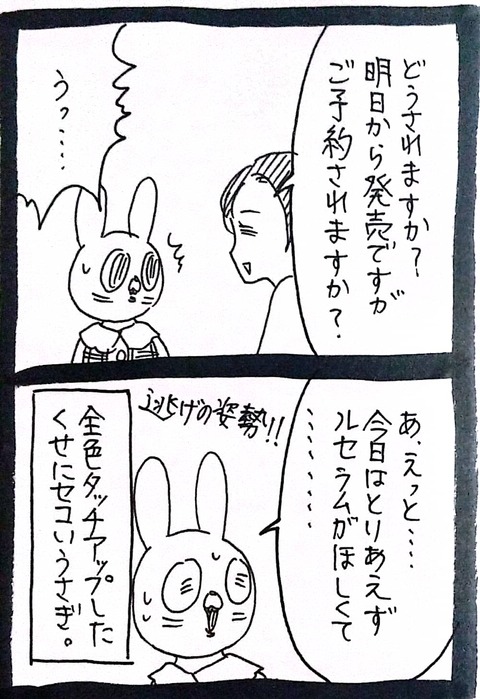 どうされますか?
明日から発売ですが
ご予約されますか?
うっ‥‥
あ、えっと‥‥
今日はとりあえず
ルセラムがほしくて
‥‥‥‥
逃げの姿勢!!
全色タッチアップした
くせにセコいうさぎ。